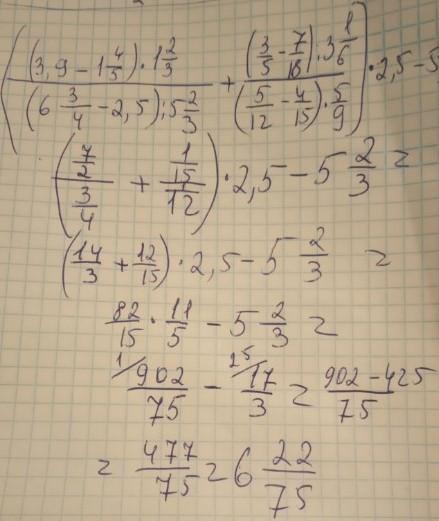 ( (3,9 - 1 4/5) · 1 2/3 / (6 3/4 - 2,5) : 5 2/3 + (3/5 - 7/18) : 3 1/6 / (5/12 - 4/15) · 5/9 ) · 2,5 - 5
( 7/2 / 3/4 + 1/15 / 12 ) · 2,5 - 5 2/3 =
( 14/3 + 12/15 ) · 2,5 - 5 2/3 =
82/15 · 11/5 - 5 2/3 =
1/ 902/75 - 25/ 17/3 = 902 - 425/75
= 477/75 = 6 22/75